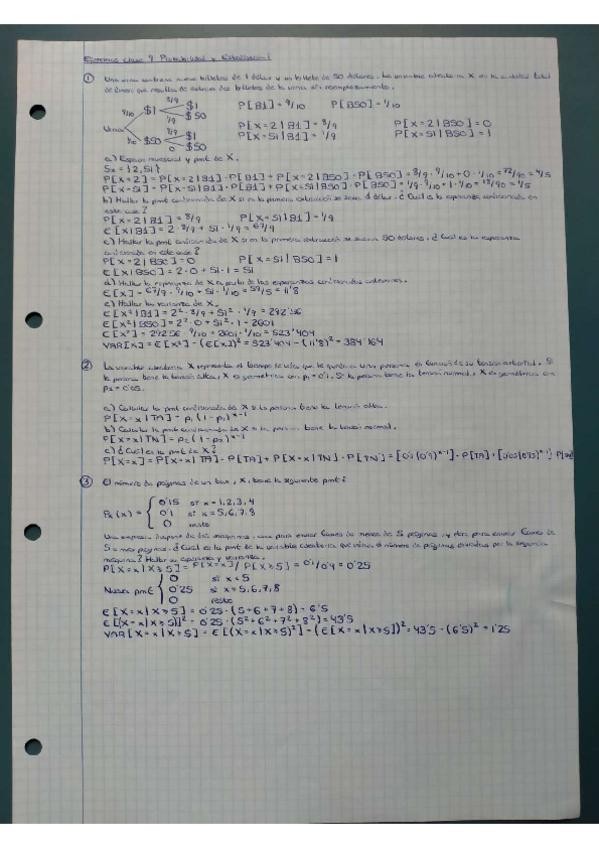 Ejercicios clase 9 Probabilidad y Estadística I
① Una urna contiene nueve billetes de 1 dólar y un billete de 50 dólares. La variable aleatoria X es la cantidad total
de dinero que resulta de extraer dos billetes de la urna sin reemplazamiento.
Urna 9/10 $1 8/9 $1
1/9 $50
1/10 $50 1 $1
0 $50
P[B1] = 9/10 P[B50] = 1/10
P[X=2|B1] = 8/9 P[X=2|B50] = 0
P[X=51|B1] = 1/9 P[X=51|B50] = 1
a) Espacio muestral y pmf de X.
Sx = {2,51}
P[X=2] = P[X=2|B1] · P[B1] + P[X=2|B50] · P[B50] = 8/9 · 9/10 + 0 · 1/10 = 72/90 = 4/5
P[X=51] = P[X=51|B1] · P[B1] + P[X=51|B50] · P[B50] = 1/9 · 9/10 + 1 · 1/10 = 18/90 = 1/5
b) Hallar la pmf condicionada de X si en la primera extracción se saca 1 dólar. ¿Cuál es la esperanza condicionada en
este caso?
P[X=2|B1] = 8/9 P[X=51|B1] = 1/9
E[X|B1] = 2 · 8/9 + 51 · 1/9 = 67/9
c) Hallar la pmf condicionada de X si en la primera extracción se sacan 50 dólares. ¿Cuál es la esperanza
condicionada en este caso?
P[X=2|B50] = 0 P[X=51|B50] = 1
E[X|B50] = 2 · 0 + 51 · 1 = 51
d) Hallar la esperanza de X a partir de las esperanzas condicionadas anteriores.
E[X] = 67/9 · 9/10 + 51 · 1/10 = 59/5 = 11'8
e) Hallar la varianza de X.
E[X²|B1] = 2² · 8/9 + 51² · 1/9 = 292'56
E[X²|B50] = 2² · 0 + 51² · 1 = 2601
E[X²] = 292'56 · 9/10 + 2601 · 1/10 = 523'404
VAR[X] = E[X²] - (E[X])² = 523'404 - (11'8)² = 384'164
② La variable aleatoria X representa el tiempo de vida que le queda a una persona en función de su tensión arterial. Si
la persona tiene la tensión alta, X es geométrica con p₁ = 0'1. Si la persona tiene la tensión normal, X es geométrica con
p₂ = 0'05.
a) Calcular la pmf condicionada de X si la persona tiene la tensión alta.
P[X=x|TA] = p₁(1-p₁)ˣ⁻¹
b) Calcular la pmf condicionada de X si la persona tiene la tensión normal.
P[X=x|TN] = p₂(1-p₂)ˣ⁻¹
c) ¿Cuál es la pmf de X?
P[X=x] = P[X=x|TA] · P[TA] + P[X=x|TN] · P[TN] = [0'1(0'9)ˣ⁻¹] · P[TA] + [0'05(0'95)ˣ⁻¹] · P[TN]
③ El número de páginas de un fax, X, tiene la siguiente pmf:
Px(x) = { 0'15 si x = 1,2,3,4
0'1 si x = 5,6,7,8
0 resto
Una empresa dispone de dos máquinas, una para enviar faxes de menos de 5 páginas, y otra para enviar faxes de
5 o más páginas. ¿Cuál es la pmf de la variable aleatoria que mide el número de páginas enviadas por la segunda
máquina? Hallar su esperanza y varianza.
P[X=x|X≥5] = P[X=x] / P[X≥5] = 0'1/0'4 = 0'25
Nueva pmf { 0 si x < 5
0'25 si x = 5,6,7,8
0 resto
E[X=x|X≥5] = 0'25 · (5+6+7+8) = 6'5
E[(X=x|X≥5)]² = 0'25 · (5²+6²+7²+8²) = 43'5
VAR[X=x|X≥5] = E[(X=x|X≥5)²] - (E[X=x|X≥5])² = 43'5 - (6'5)² = 1'25